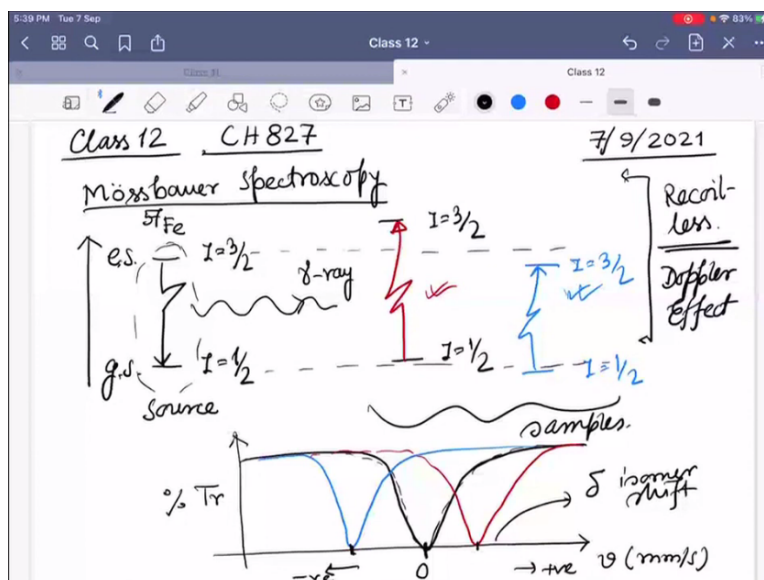 5:39 PM Tue 7 Sep
83%
Class 12
Class 12
Class 12 CH827 7/9/2021
Mössbauer Spectroscopy
Recoil-
less.
Doppler
Effect
57Fe
e.s. I=3/2
γ-ray
g.s. I=1/2
Source
I=3/2
I=1/2
I=3/2
I=1/2
samples.
% Tr
δ isomer
shift
-ve ← 0 → +ve ν (mm/s)